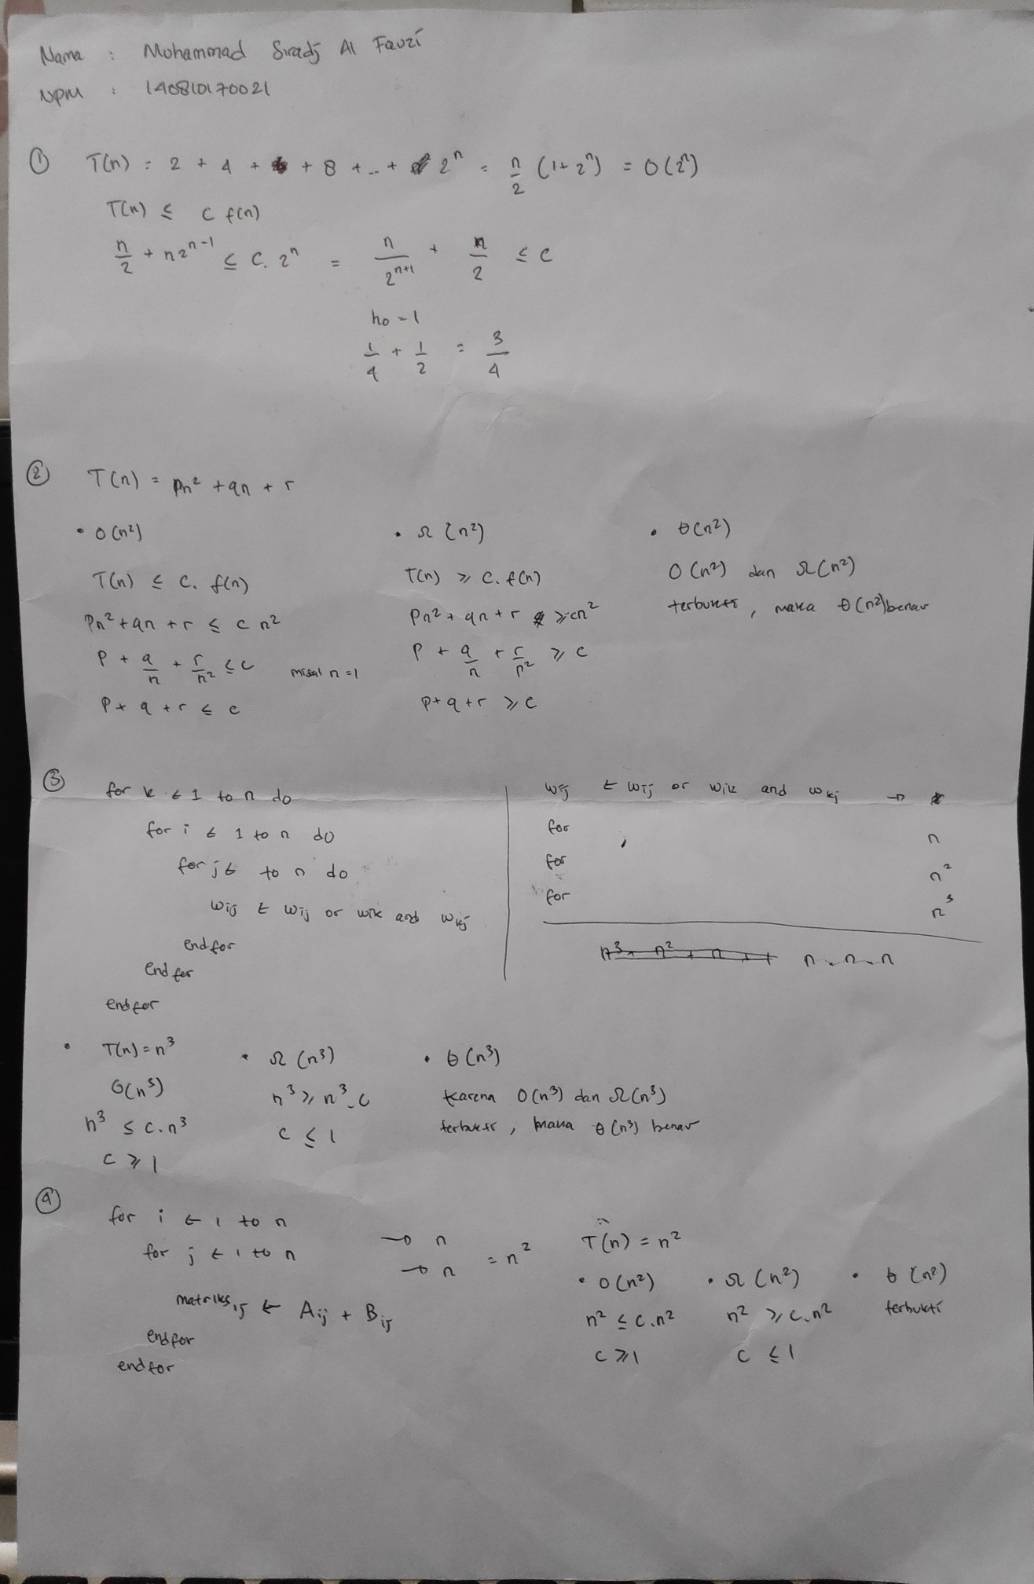 Nama : Mohammad Siradj Al Fauzi
NPM : 140810170021
① T(n) = 2 + 4 + + 8 + .. + 2^n = n/2 (1+2^n) = O(2^n)
T(n) ≤ C f(n)
n/2 + n2^(n-1) ≤ C. 2^n = n/2^(n+1) + n/2 ≤ C
no = 1
1/4 + 1/2 = 3/4
② T(n) = Pn² + qn + r
• O(n²)
T(n) ≤ C. f(n)
Pn² + qn + r ≤ c n²
P + q/n + r/n² ≤ C misal n = 1
P + q + r ≤ c
• Ω (n²)
T(n) ≥ C. f(n)
Pn² + qn + r ≥ cn²
P + q/n + r/n² ≥ C
P + q + r ≥ C
• θ(n²)
O(n²) dan Ω(n²)
terbukti, maka θ(n²) benar
③ for k ← 1 to n do
for i ← 1 to n do
for j ← to n do
wij ← wij or wik and wkj
endfor
endfor
endfor
wij ← wij or wik and wkj →
for n
for n²
for n³
n³ + n² + n + 1 n . n . n
• T(n) = n³
O(n³)
n³ ≤ c.n³
c ≥ 1
• Ω (n³)
n³ ≥ n³.c
c ≤ 1
• θ(n³)
Karena O(n³) dan Ω(n³)
terbukti, maka θ(n³) benar
④ for i ← 1 to n → n
for j ← 1 to n → n = n²
matriks ij ← Aij + Bij
endfor
endfor
T(n) = n²
• O(n²)
n² ≤ c.n²
c ≥ 1
• Ω (n²)
n² ≥ c.n²
c ≤ 1
• θ (n²)
terbukti